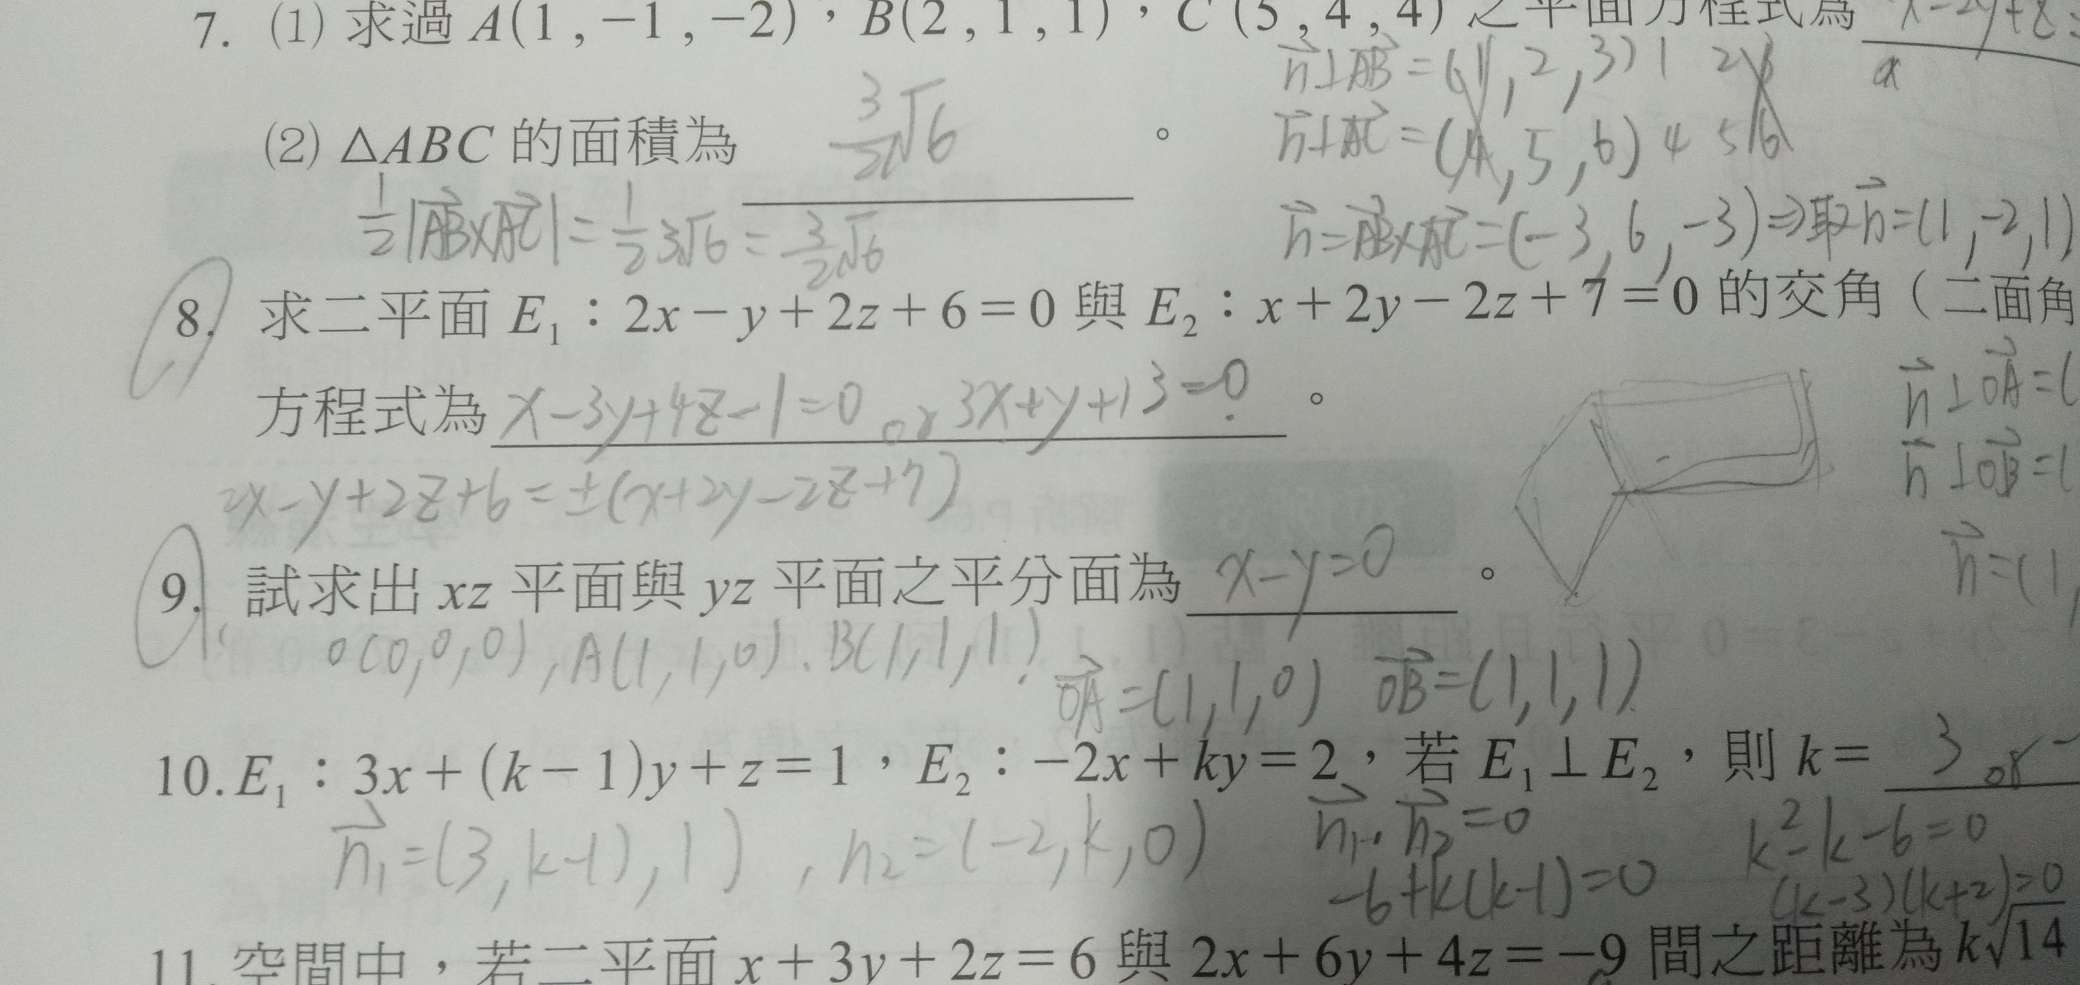 7. (1) 求過 A(1 , −1 , −2)，B(2 , 1 , 1)，C (5 , 4 , 4) 之平面方程式為 x−2y+z=
n⊥AB = (1, 2, 3) 1 2 3
(2) △ABC 的面積為 3/2√6 。
n⊥AC = (4, 5, 6) 4 5 6
1/2|AB×AC| = 1/2 3√6 = 3/2√6
n=AB×AC=(−3, 6, −3)⇒取n=(1, −2, 1)
8. 求二平面 E₁：2x − y + 2z + 6 = 0 與 E₂：x + 2y − 2z + 7 = 0 的交角（二面角
方程式為 x−3y+4z−1=0 or 3x+y+13=0 。
n⊥OA=(
n⊥OB=(
2x−y+2z+6=±(x+2y−2z+7)
n=(1,
9. 試求出 xz 平面與 yz 平面之平分面為 x−y=0 。
O(0,0,0), A(1,1,0), B(1,1,1)
OA=(1,1,0) OB=(1,1,1)
10. E₁：3x + (k − 1)y + z = 1，E₂：−2x + ky = 2，若 E₁⊥E₂，則 k = 3 or −
n₁=(3, k−1), 1) , n₂=(−2, k, 0) n₁·n₂=0 k²−k−6=0
−6+k(k−1)=0 (k−3)(k+2)=0
11. 空間中，若二平面 x + 3y + 2z = 6 與 2x + 6y + 4z = −9 間之距離為 k√14